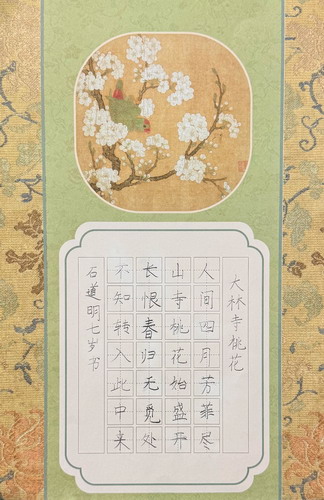 大林寺桃花
人间四月芳菲尽
山寺桃花始盛开
长恨春归无觅处
不知转入此中来
石道明七岁书